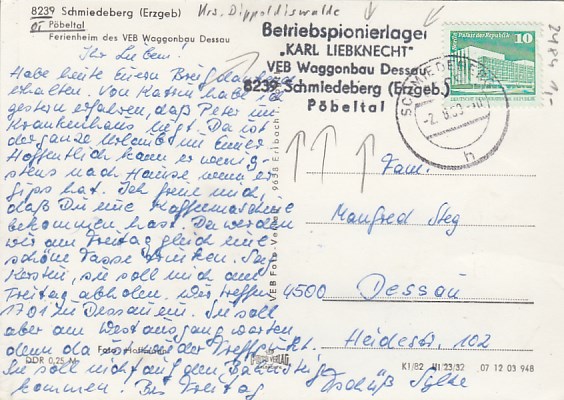 8239 Schmiedeberg (Erzgeb)
OT Pöbeltal
Ferienheim des VEB Waggonbau Dessau
Krs. Dippoldiswalde
Betriebspionierlager
„KARL LIEBKNECHT"
VEB Waggonbau Dessau
8239 Schmiedeberg (Erzgeb.)
Pöbeltal
Palast der Republik
10
DDR
SCHMIEDEBERG
h
2484
1,-
Ihr Lieben!
Habe heute Euren Brief dankend
erhalten. Von Karsten habe ich
gestern erfahren, daß Peter im
Krankenhaus liegt. Da ist
der ganze Urlaub im Eimer.
Hoffentlich kann er wenig-
stens nach Hause, wenn er
Gips hat. Ich freue mich,
daß Du eine Kaffemaschine
bekommen hast. Da werden
wir am Freitag gleich eine
schöne Tasse trinken. Sag
Kersten, sie soll mich am
Freitag abholen. Wir treffen
17.01 in Dessau ein. Sie soll
aber am Westausgang warten
denn da ist der Treffpunkt.
Sie soll nicht auf den Bahnsteig
kommen. Bis Freitag
Tschüß Sylke
Fam.
Manfred Steg
4500 Dessau
Heidestr. 102
VEB Foto-Verlag 9658 Erlbach
Foto: Hoffmann
DDR 0,25 M
VERLAG
K1/82 III/23/32 07 12 03 948